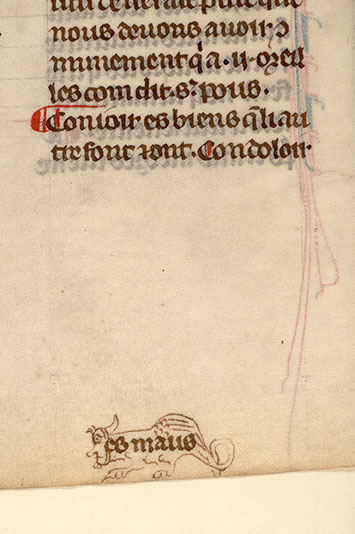 nous deuons auoir ⁊
munement q̃ a .ii. oreil
les com dit. S. pous.
Conioir es biens q̃ li au
tre font ⁊ ont. Condoloir
es maus